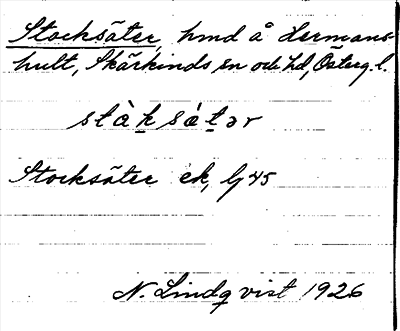 Stocksäter, hmd å Hermans-
hult, Skärkinds sn och hd, Österg. l.
stàk sètər
Stocksäter ek, Lj 45
N. Lindqvist 1926